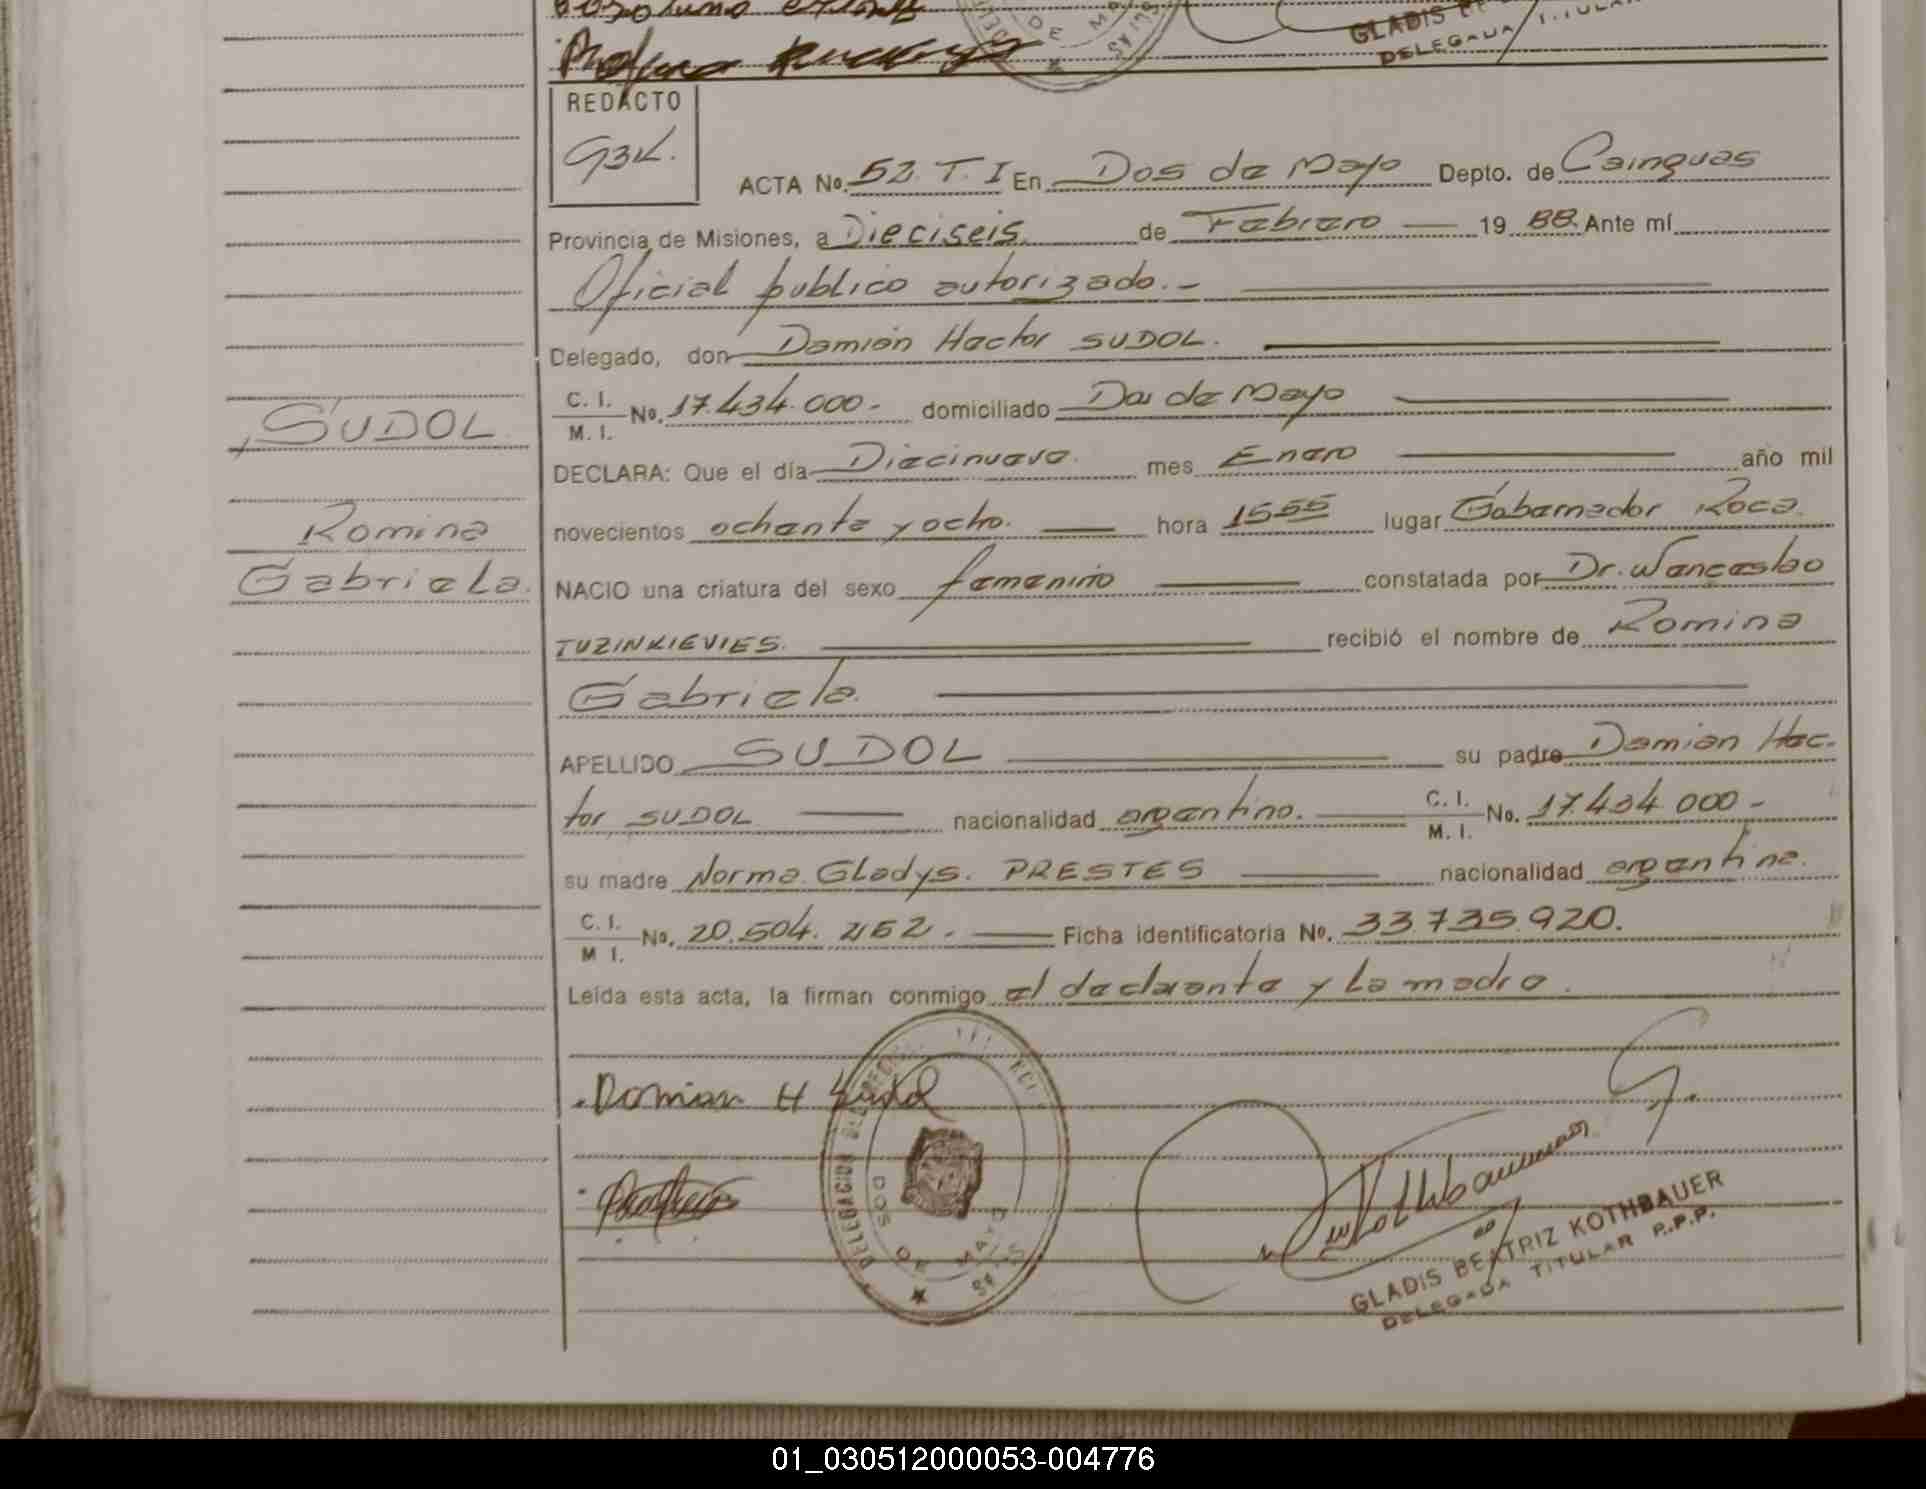 GLADIS BE
DELEGADA TITULA
REDACTO
GBK.
ACTA No. 52. T. I En Dos de Mayo Depto. de Cainguas
Provincia de Misiones, a Dieciseis. de Febrero 1988. Ante mí
Oficial publico autorizado.-
Delegado, don Damián Hector SUDOL.
C. I.
M. I. No. 17.434.000- domiciliado Dos de Mayo
SUDOL
DECLARA: Que el día Diecinueve. mes Enero año mil
Romina
novecientos ochenta y ocho. hora 1555 lugar Gobernador Roca.
Gabriela.
NACIO una criatura del sexo femenino constatada por Dr. Wenceslao
TUZINKIEVIES. recibió el nombre de Romina
Gabriela.
APELLIDO SUDOL su padre Damián Hec-
tor SUDOL nacionalidad argentino. C. I. M. I. No. 17.434.000-
su madre Norma Gladys. PRESTES nacionalidad argentina.
C. I.
M I. No. 20.504.
Ficha identificatoria No. 33.735.920.
Leída esta acta, la firman conmigo el declarante y la madre.
Damian H Sudol
DELEGACION
DOS DE MAYO
GLADIS BEATRIZ KOTHBAUER
DELEGADA TITULAR P.P.P.
01_030512000053-004776